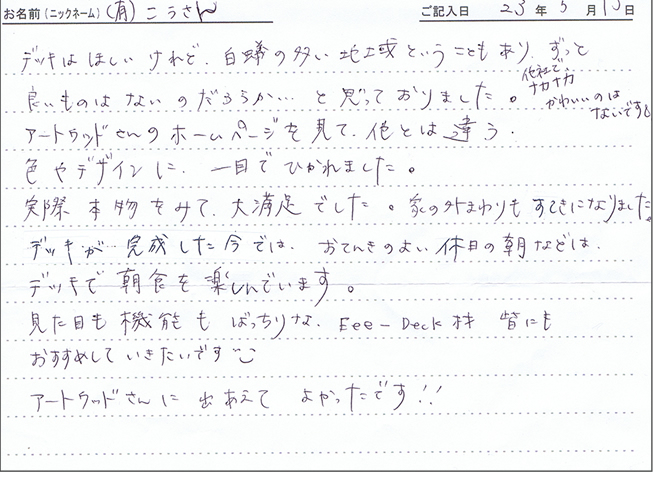 お名前(ニックネーム) (有)こうさん ご記入日 23年5月15日
デッキはほしいけれど、白蟻の多い地域ということもあり、ずっと
良いものはないのだろうか…と思っておりました。
他社で、ナカナカかわいいのはないですし
アートウッドさんのホームページを見て、他とは違う、
色やデザインに、一目でひかれました。
実際本物をみて、大満足でした。家の外まわりもすてきになりました。
デッキが完成した今では、おてんきのよい休日の朝などは、
デッキで朝食を楽しんでいます。
見た目も機能もばっちりな、Eee-Deck材 皆にも
おすすめしていきたいです
アートウッドさんに出あえてよかったです!!